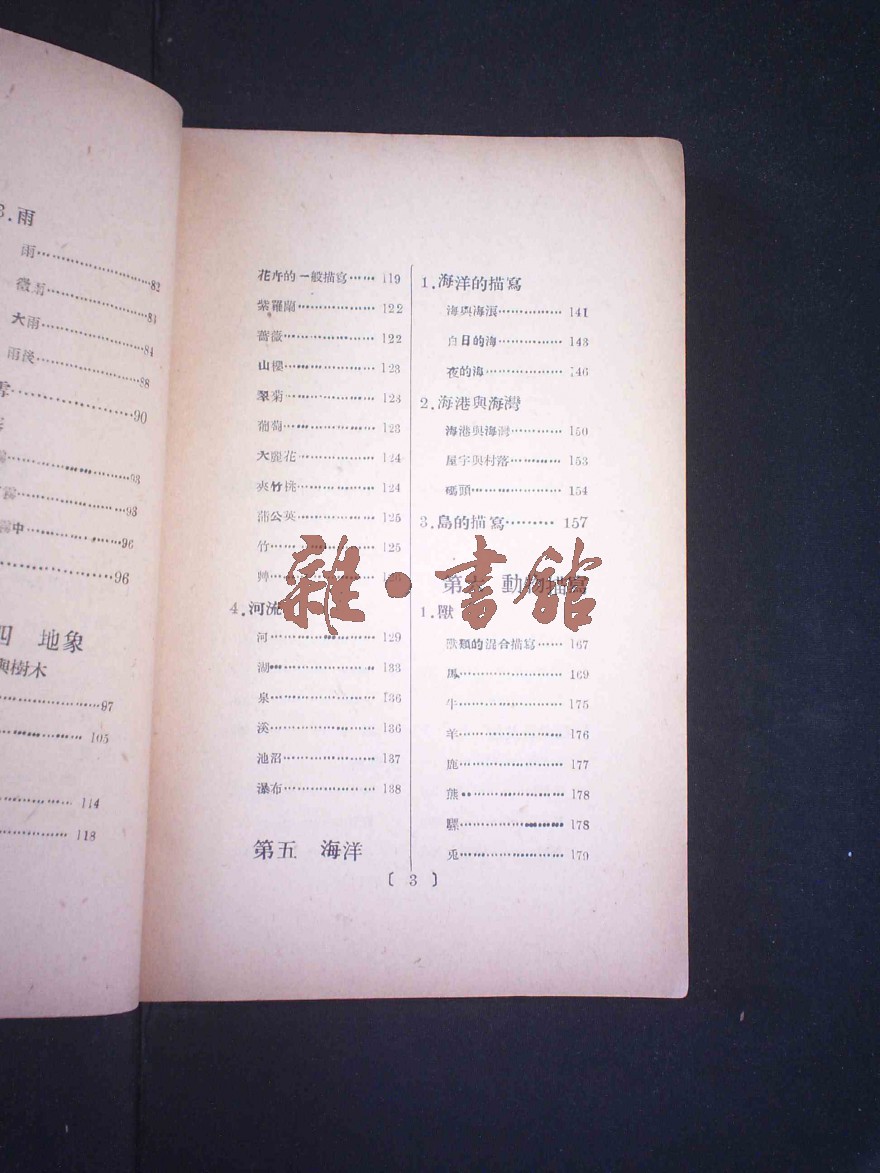 3.雨
雨……82
微雨……84
大雨……84
雨後……88
雪……90
霧……93
霧……93
霧中……96
……96
四 地象
與樹木
……97
……105
……114
……118
花卉的一般描寫……119
紫羅蘭……122
薔薇……122
山櫻……123
翠菊……123
葡萄……123
大麗花……124
夾竹桃……124
蒲公英……125
竹……125
艸……126
4.河流
河……129
湖……133
泉……136
溪……136
池沼……137
瀑布……138
第五 海洋
1.海洋的描寫
海與海浪……141
白日的海……143
夜的海……146
2.海港與海灣
海港與海灣……150
屋宇與村落……153
碼頭……154
3.島的描寫……157
第六 動物描寫
1.獸
獸類的混合描寫……167
馬……169
牛……175
羊……176
鹿……177
熊……178
騾……178
兎……179
〔 3 〕
雜·書館